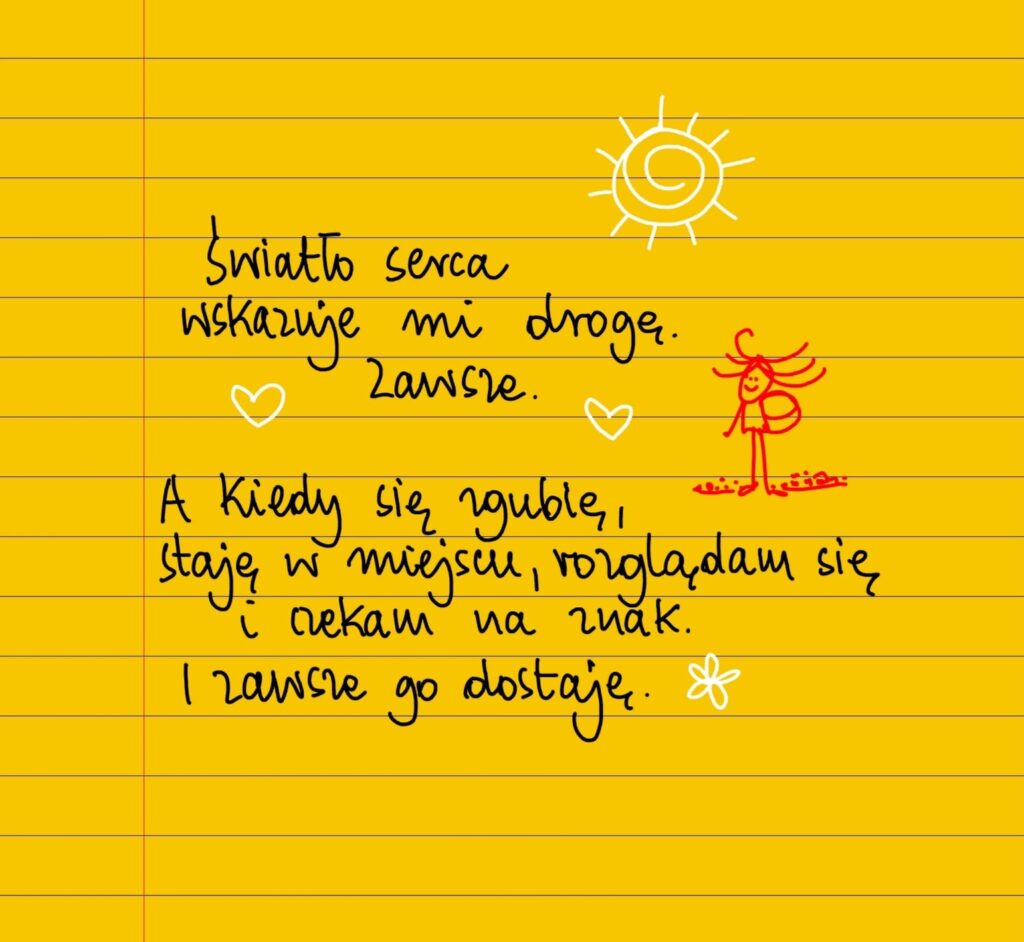 Światło serca
wskazuje mi drogę.
Zawsze.
A kiedy się zgubię,
staję w miejscu, rozglądam się
i czekam na znak.
I zawsze go dostaję.